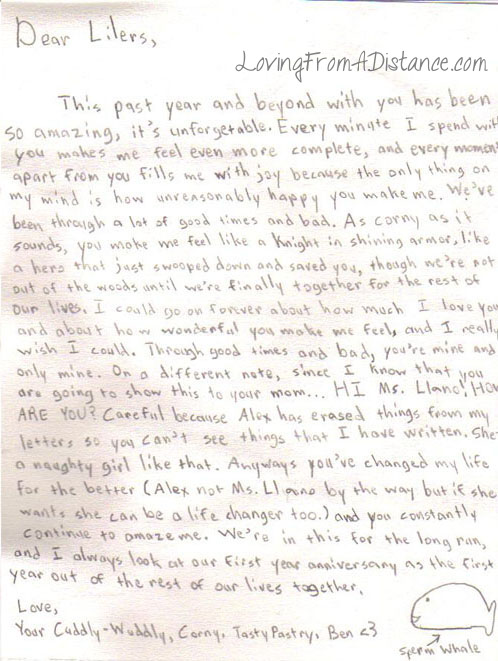 Dear Lilers,
LovingFromADistance.com
This past year and beyond with you has been
so amazing, it's unforgetable. Every minute I spend with
you makes me feel even more complete, and every moment
apart from you fills me with joy because the only thing on
my mind is how unreasonably happy you make me. We've
been through a lot of good times and bad. As corny as it
sounds, you make me feel like a Knight in shining armor, like
a hero that just swooped down and saved you, though we're not
out of the woods until we're finally together for the rest of
our lives. I could go on forever about how much I love you
and about how wonderful you make me feel, and I really
wish I could. Through good times and bad, you're mine and
only mine. On a different note, since I know that you
are going to show this to your mom... HI Ms. Llano! HOW
ARE YOU? Careful because Alex has erased things from my
letters so you can't see things that I have written. She's
a naughty girl like that. Anyways you've changed my life
for the better (Alex not Ms. Llano by the way but if she
wants she can be a life changer too.) and you constantly
continue to amaze me. We're in this for the long run,
and I always look at our first year anniversary as the first
year out of the rest of our lives together.
Love,
Your Cuddly-Wuddly, Corny, Tasty Pastry, Ben <3
sperm whale